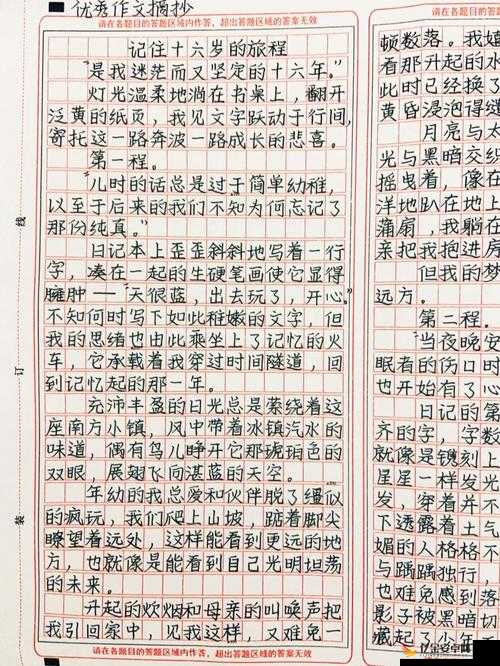 优秀作文摘抄
请在各题目的答题区域内作答，超出答题区域的答案无效
记住十六岁的旅程
“是我迷茫而又坚定的十六年。”
灯光温柔地淌在书桌上，翻开
泛黄的纸页，我见文字跃动于行间，
寄托这一路奔波一路成长的悲喜。
第一程。
“儿时的话总是过于简单幼稚，
以至于后来的我们不知为何忘记了
那份纯真。”
日记本上歪歪斜斜地写着一行
字，凑在一起的生硬笔画使它显得
臃肿——“天很蓝，出去玩了，开心。”
不知何时写下如此稚嫩的文字，但
我的思绪也由此乘坐上了记忆的火
车，它承载着我穿过时间隧道，回
到记忆起的那一年。
充沛丰盈的日光总是萦绕着这
座南方小镇，风中带着冰镇汽水的
味道，偶有鸟儿睁开它那琥珀色的
双眼，展翅飞向湛蓝的天空。
年幼的我总爱和伙伴脱了缰似
的疯玩，我们爬上山坡，踮着脚尖
瞭望着远处，这样能看到更远的地
方，也就像是能看到自己光明坦荡
的未来。
升起的炊烟和母亲的叫唤声把
我引回家中，见我这样，又难免一
请在各题目的答题区域内作答，超出答题区域的答案无效
线
订
装
请在各题目的答题
顿数落。我嬉
看那升起的水
此时已经换了
黄昏浸泡得缱
月亮与水
光与黑暗交织
摇曳着，像在
洋地趴在地上
蒲扇，我躺在
亲把我抱进房
但我的梦
远方。
第二程。
“当夜晚安
眠者的伤口时
也开始有了心
日记的第
齐的字，字数
就像是镌刻上
星星一样发光
发，穿着并不
下透露着土气
媚的人格格不
与踽踽独行，
也难免感到落
影子被黑暗切
藏起了少年
亿金安卓网